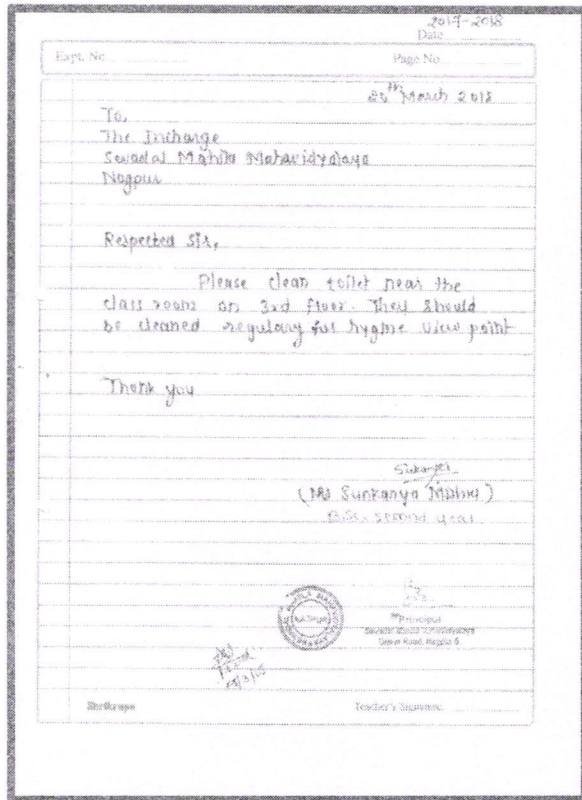 2017-2018
Date
Expt. No.
Page No.
20th March 2018
To,
The Incharge
Sevadal Mahila Mahavidyalaya
Nagpur
Respected Sir,
Please clean toilet near the
class room on 3rd floor. They should
be cleaned regulary for hygine view point
Thank you
Sukanya
(Ms Sunkanya
B.Sc. second year
NAGPUR
Principal
Sevadal Mahila Mahavidyalaya
Nagpur
Shrikrupa
Teacher's Signature